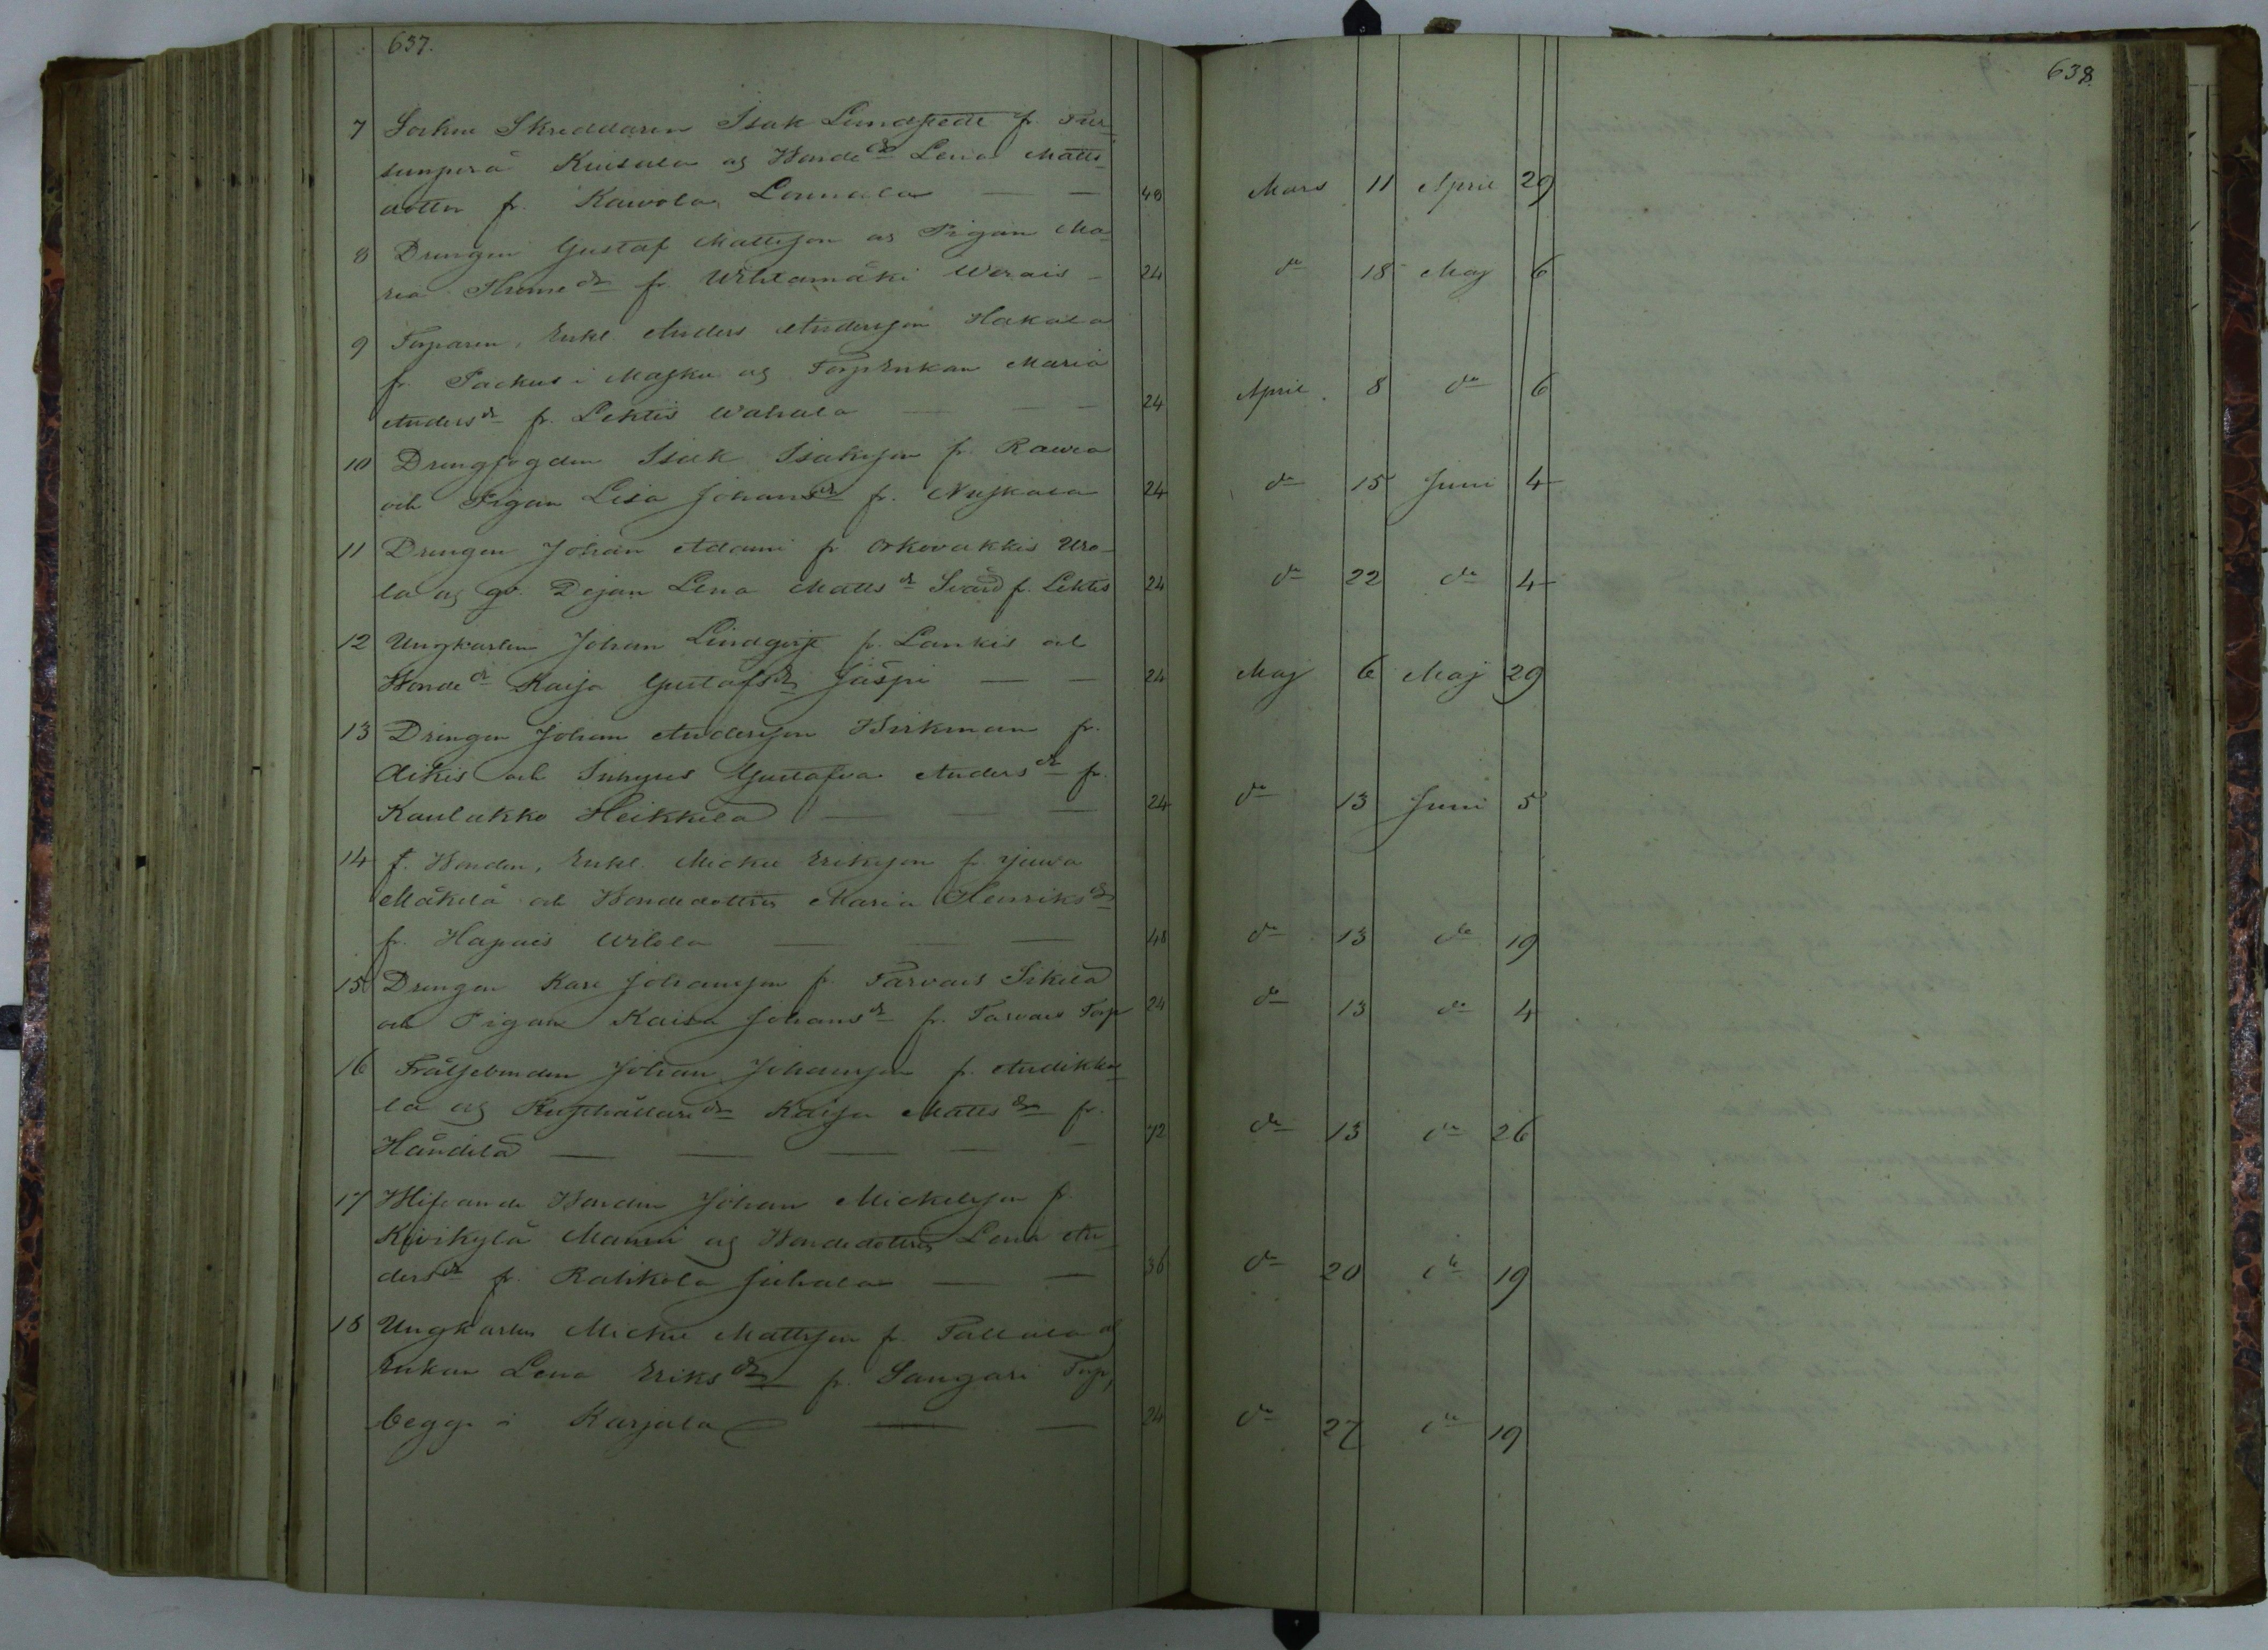 637.
638.
7 Sockne Skreddaren Isak Lundstedt fr. Tur-
sunperä Kuisala og Bonde dr Lena Matts-
dotter fr. Kawola Lounala — — 48 Mars 11 April 29
8 Drengen Gustaf Mattsson og Pigan Ma-
ria Thome dr fr Wihtamäki Werais — 24 do 18 Maj 6
9 Torparen, Enkl. Anders Andersson Hakala
fr. Packus i Masku og Torp Enkan Maria
Anders dr fr. Lehtis Wahala — — — 24 April 8 do 6
10 Drengfogden Isak Isaksson fr. Rawea
och Pigan Lisa Johans dr fr. 24 do 15 Juni 4
11 Drengen Johan Adami fr Orkovakkis Uro-
la og gv. Dejan Lena Matts dr Svärd fr. Lehtis 24 do 22 do 4
12 Ungkarlen Johan Lindqvist fr. Lankis och
Bonde dr Kaisa Gustafs dr Jäspi — — 24 Maj 6 Maj 29
13 Drengen Johan Andersson Birkman fr.
Aihis och Inhyses Gustafva Anders dr fr.
Kaulakko Heikkilä — — — 24 do 13 Juni 5
14 f. Bonden, Enkl. Mickel Eriksson fr. Yjuwa
Mäkilä och Bondedottren Maria Henriks dr
fr. Hapais Wilola — — 48 do 13 do 19
15 Drengen Karl Johansson fr. Tarvais Sikilä
och Pigan Kaisa Johans dr fr. Tarvais Torp 24 do 13 do 4
16 Frälsebonden Johan Johansson fr. Andikko-
la og Rusthållare dr Kaisa Matts dr fr.
Händilä — — — — — 72 do 13 do 26
17 Blifvande Bonden Johan Mickelsson fr.
Kivikylä Manni og Bondedottren Lena An-
ders dr fr. Rahkola Juhala — — 36 do 20 do 19
18 Ungkarlen Mickel Mattsson fr. Pallala og
Enkan Lena Eriks dr fr. Sangari Torp,
begge i Karjala — — 24 do 27 do 19